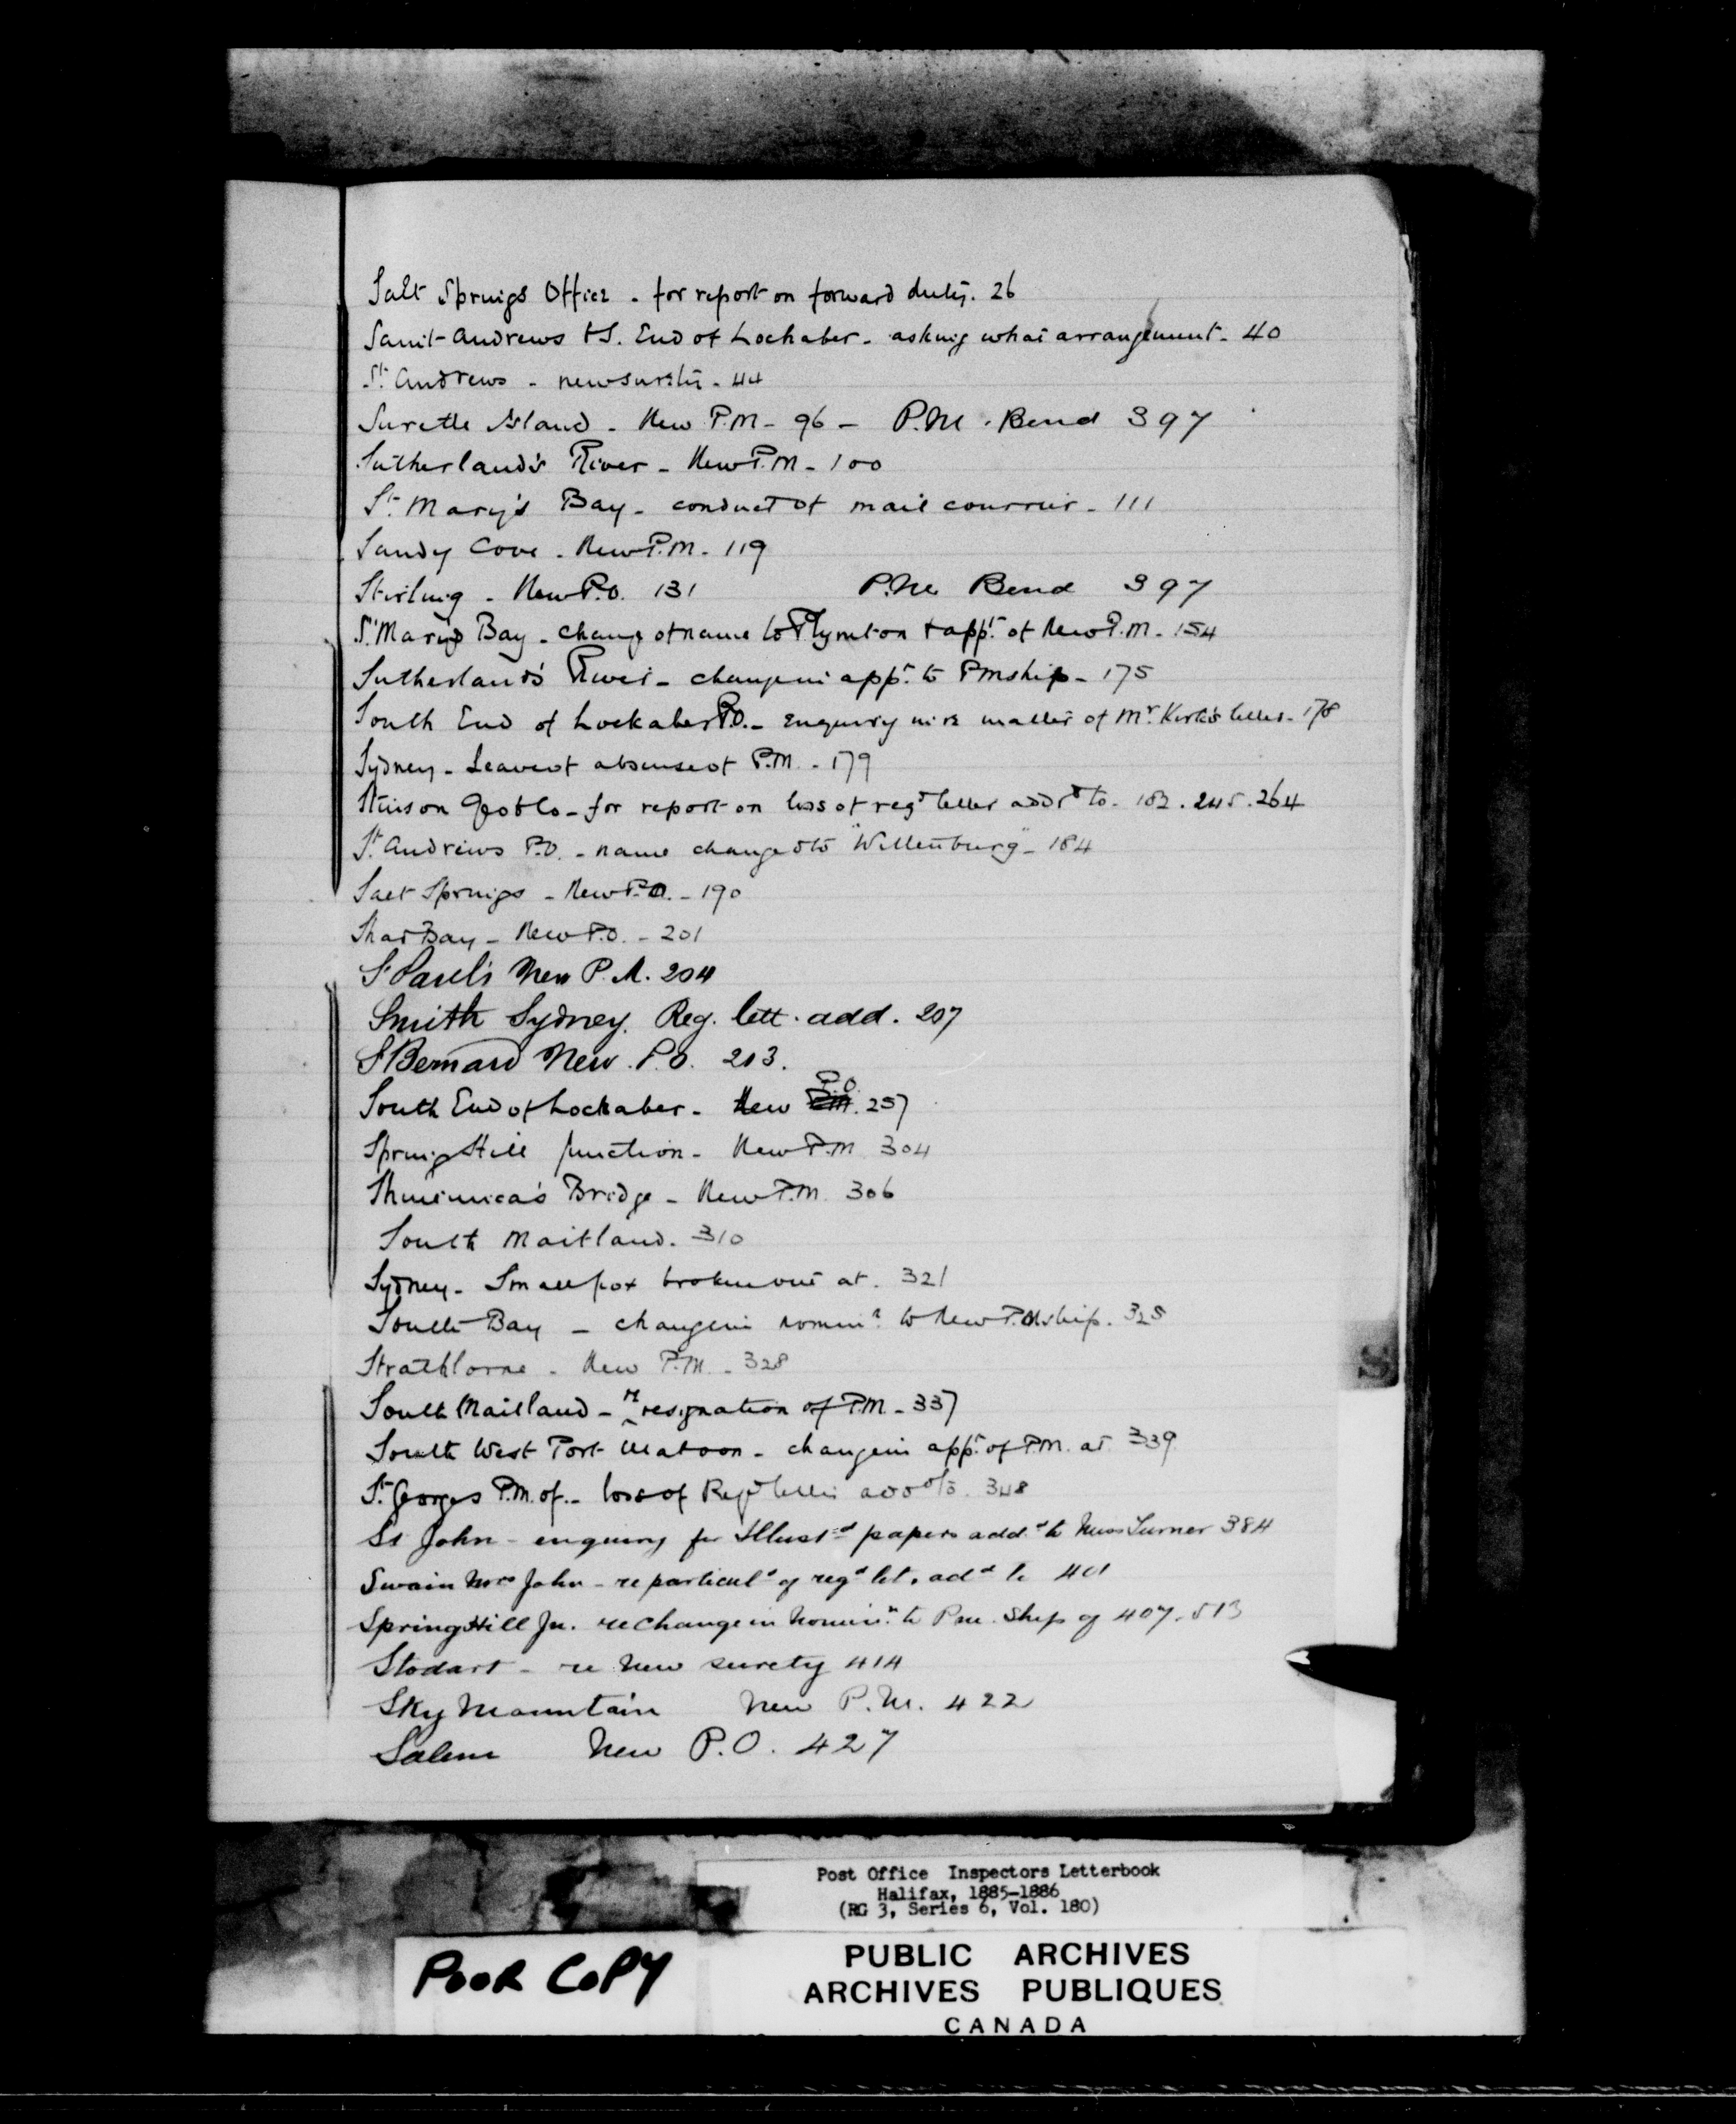 Salt Springs Office - for report on forward duty. 26
Saint Andrews & S. End of Lochaber - asking what arrangement - 40
St. Andrews - new surety - 44
Surette Island - New P.M - 96 - P.M. Bend 397
Sutherland's River - New P.M - 100
St. Mary's Bay - conduct of mail courrier - 111
Sandy Cove - New P.M. - 119
Stirling - New P.O. 131 P.M. Bend 397
St. Marys Bay - change of name to Plymton & appt. of New P.M. - 154
Sutherland's River - change in appt. to Pmship - 175
South End of Lochaber P.O. - Enquiry in re matter of Mr. Kirk's letter - 178
Sydney - Leave of absence of P.M. - 179
Stinson Geo & Co - for report on loss of regd letter addrd to - 182. 245. 264
St. Andrews P.O. - name changed to "Wittenburg" - 184
Salt Springs - New P.O. - 190
Shad Bay - New P.O. - 201
St Paul's New P. M. 204
Smith Sydney. Reg. lett. add. 207
St Bernard New. P.O. 213.
South End of Lochaber - New P.M. P.O. 257
Spring Hill Junction - New P.M 304
Bridge - New P.M. 306
South Maitland. 310
Sydney - Small pox broken out at. 321
South Bay - change in nominn. to New P.M.ship. 325
Strathlorne - New P.M. - 328
South Maitland - re resignation of P.M. - 337
South West Port Matoon - change in appt. of P.M. at 339
St. Georges P.M. of. - loss of Regd letter addd to. 348
St John - enquiry for Illustd papers addd to Miss Turner 384
Swain Mrs John - re particuls of regd let. add to 401
Spring Hill Jn. re change in Nominn. to Pm. Ship of 407. 513
Stodart - re New surety 414
Sky Mountain New P.M. 422
Salem New P.O. 427
S
Post Office Inspectors Letterbook
Halifax, 1885-1886
(RG 3, Series 6, Vol. 180)
POOR COPY
PUBLIC ARCHIVES
ARCHIVES PUBLIQUES
CANADA